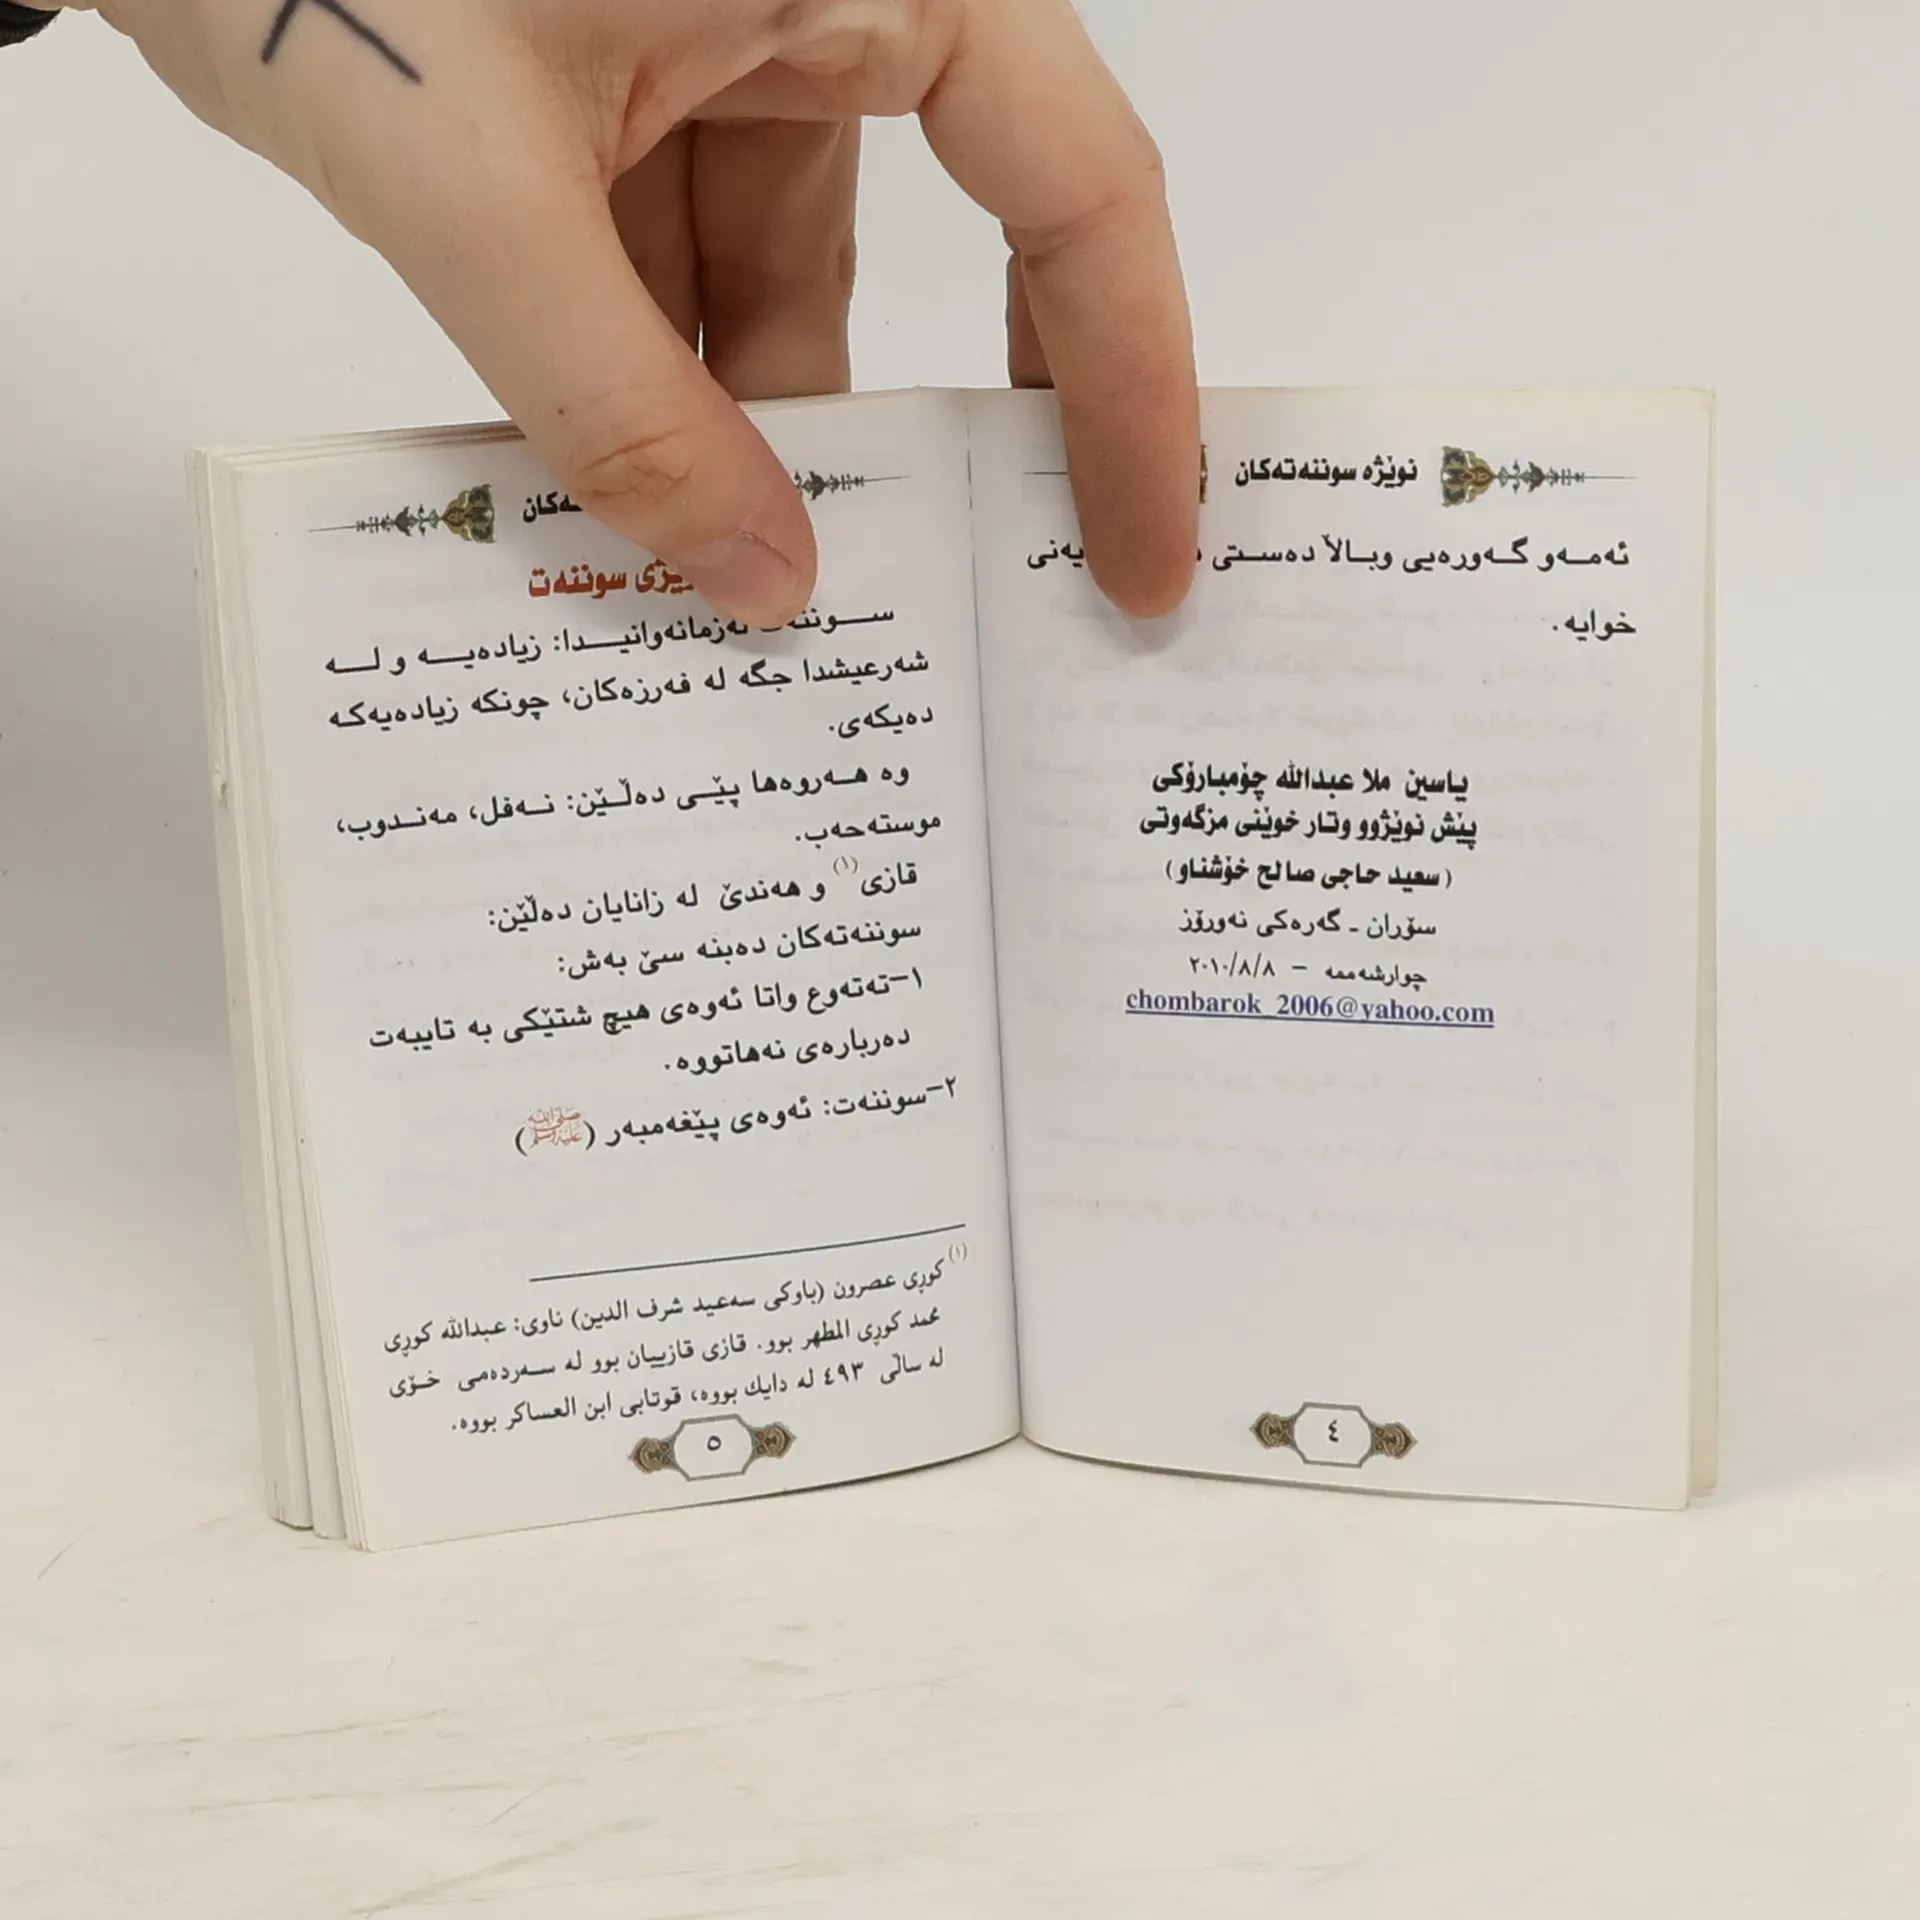 نوێژە سوننەتەکان
ئەمەو گەورەیی وبالاَ دەستی
خوایە.
یاسین ملا عبداللە چۆمبارۆکی
پێش نوێژوو وتار خوێنی مزگەوتی
(سعید حاجی صالح خۆشناو)
سۆران ـ گەرەکی نەورۆز
چوارشەممە – ٢٠١٠/٨/٨
chombarok_2006@yahoo.com
٤
سوننەت
سوننەت لەزمانەوانیدا: زیادەیە و لە
شەرعیشدا جگە لە فەرزەکان، چونکە زیادەیەکە
دەیکەی.
وە هەروەها پێی دەڵێن: نەفل، مەندوب،
موستەحەب.
قازی(١) و هەندێ لە زانایان دەڵێن:
سوننەتەکان دەبنە سێ بەش:
١–تەتەوع واتا ئەوەی هیچ شتێکی بە تایبەت
دەربارەی نەهاتووە.
٢–سوننەت: ئەوەی پێغەمبەر (ﷺ)
(١) کوڕی عصرون (باوکی سەعید شرف الدین) ناوی: عبداللە کوڕی
محمد کوڕی المطهر بوو. قازی قازییان بوو لە سەردەمی خۆی
لە ساڵی ٤٩٣ لە دایك بووە، قوتابی ابن العساکر بووە.
٥